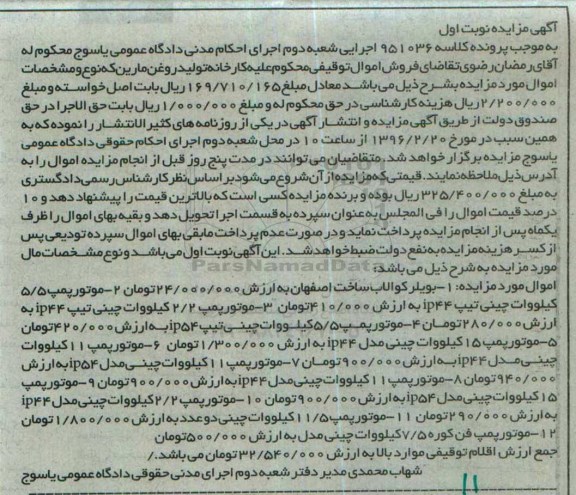 آگهی مزایده نوبت اول
به موجب پرونده کلاسه ۹۵۱۰۳۶ اجرایی شعبه دوم اجرای احکام مدنی دادگاه عمومی یاسوج محکوم له
آقای رمضان رضوی تقاضای فروش اموال توقیفی محکوم علیه کارخانه تولید روغن مارین که نوع و مشخصات
اموال مورد مزایده بشرح ذیل می باشد معادل مبلغ ۱۶۹/۷۱۰/۱۶۵ ریال بابت اصل خواسته و مبلغ
۲/۲۰۰/۰۰۰ ریال هزینه کارشناسی در حق محکوم له و مبلغ ۱/۰۰۰/۰۰۰ ریال بابت حق الاجرا در حق
صندوق دولت از طریق آگهی مزایده و انتشار آگهی در یکی از روزنامه های کثیر الانتشار را نموده که به
همین سبب در مورخ ۱۳۹۶/۲/۲۰ از ساعت ۱۰ در محل شعبه دوم اجرای احکام حقوقی دادگاه عمومی
یاسوج مزایده برگزار خواهد شد. متقاضیان می توانند در مدت پنج روز قبل از انجام مزایده اموال را به
آدرس ذیل ملاحظه نمایند. قیمتی که مزایده از آن شروع می شود بر اساس نظر کارشناس رسمی دادگستری
به مبلغ ۳۲۵/۴۰۰/۰۰۰ ریال بوده و برنده مزایده کسی است که بالاترین قیمت را پیشنهاد دهد و ۱۰
درصد قیمت اموال را فی المجلس به عنوان سپرده به قسمت اجرا تحویل دهد و بقیه بهای اموال را ظرف
یکماه پس از انجام مزایده پرداخت نماید و در صورت عدم پرداخت مابقی بهای اموال سپرده تودیعی پس
از کسر هزینه مزایده به نفع دولت ضبط خواهد شد. این آگهی نوبت اول می باشد و نوع مشخصات مال
مورد مزایده به شرح ذیل می باشد:
اموال مورد مزایده: ۱-بویلر کوالاب ساخت اصفهان به ارزش ۲۴/۰۰۰/۰۰۰ تومان ۲-موتور پمپ ۵/۵
کیلووات چینی تیپ ip۴۴ به ارزش ۴۱۰/۰۰۰ تومان ۳-موتور پمپ ۲/۲ کیلووات چینی تیپ ip۴۴ به
ارزش ۲۸۰/۰۰۰ تومان ۴-موتور پمپ ۵/۵ کیلووات چینی تیپ ip۵۴ به ارزش ۴۲۰/۰۰۰ تومان
۵-موتور پمپ ۱۵ کیلووات چینی مدل ip۴۴ به ارزش ۱/۳۰۰/۰۰۰ تومان ۶-موتور پمپ ۱۱ کیلووات
چینی مدل ip۴۴ به ارزش ۹۰۰/۰۰۰ تومان ۷-موتور پمپ ۱۱ کیلووات چینی مدل ip۵۴ به ارزش
۹۴۰/۰۰۰ تومان ۸-موتور پمپ ۱۱ کیلووات چینی مدل ip۴۴ به ارزش ۹۰۰/۰۰۰ تومان ۹-موتور پمپ
۱۵ کیلووات چینی مدل ip۵۴ به ارزش ۹۰۰/۰۰۰ تومان ۱۰-موتور پمپ ۲/۲ کیلووات چینی مدل ip۴۴
به ارزش ۲۹۰/۰۰۰ تومان ۱۱-موتور پمپ ۱۱/۵ کیلووات چینی دو عدد به ارزش ۱/۸۰۰/۰۰۰ تومان
۱۲-موتور پمپ فن کوره ۷/۵ کیلووات چینی مدل به ارزش ۵۰۰/۰۰۰ تومان
جمع ارزش اقلام توقیفی موارد بالا به ارزش ۳۲/۵۴۰/۰۰۰ تومان می باشد./
شهاب محمدی مدیر دفتر شعبه دوم اجرای مدنی حقوقی دادگاه عمومی یاسوج